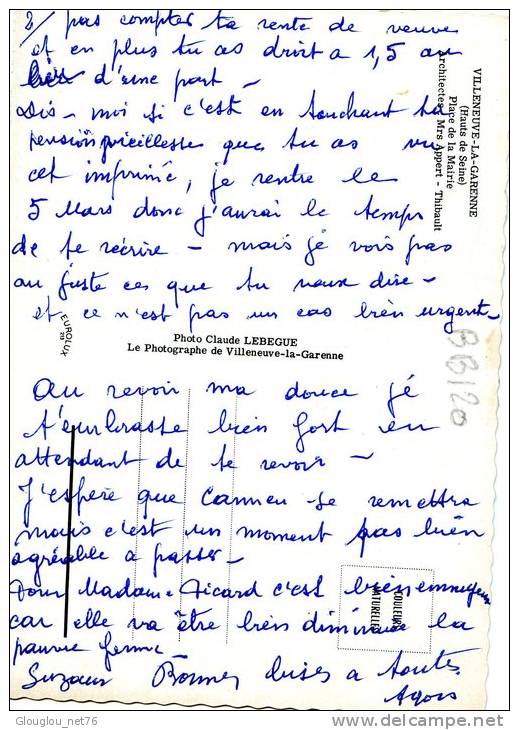 2/ pas compter ta rente de veuve
et en plus tu as droit a 1,5 au
d'une part -
Dis-moi si c'est en touchant ta
pension vieillesse que tu as vu
cet imprimé, je rentre le
5 Mars donc j'aurai le temps
de te récrire - mais je vois pas
au juste ces que tu veux dire -
et ce n'est pas un cas bien urgent -
VILLENEUVE-LA-GARENNE
(Hauts de Seine)
Place de la Mairie
Architectes : Mrs Appert - Thibault
EUROLUX
Photo Claude LEBEGUE
Le Photographe de Villeneuve-la-Garenne
BB120
Au revoir ma douce je
t'embrasse bien fort en
attendant de te revoir -
J'espère que se remettra
mais c'est un moment pas bien
agréable a passer -
Pour Madame Picard c'est bien ennuyeux
car elle va être bien diminuée la
pauvre femme -
COULEURS
NATURELLES
Bonnes bises a toutes
Glouglou_net76
www.delcampe.net